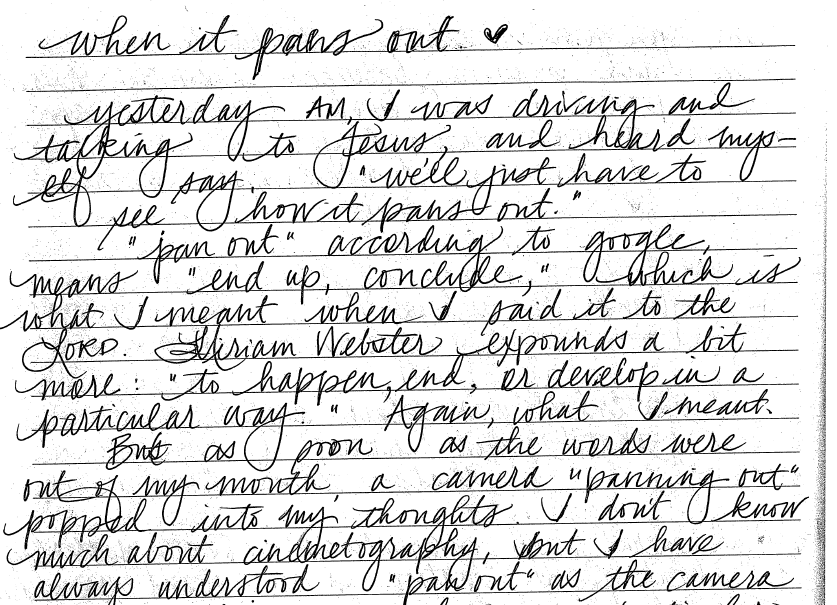 when it pans out ♥
yesterday AM, I was driving and
talking to Jesus, and heard mys-
elf say, "we'll just have to
see how it pans out."
"pan out" according to google,
means "end up, conclude," which is
what I meant when I said it to the
LORD. Miriam Webster expounds a bit
more: "to happen, end, or develop in a
particular way." Again, what I meant.
But as soon as the words were
out of my mouth, a camera "panning out"
popped into my thoughts. I don't know
much about cinemetography, but I have
always understood "pan out" as the camera